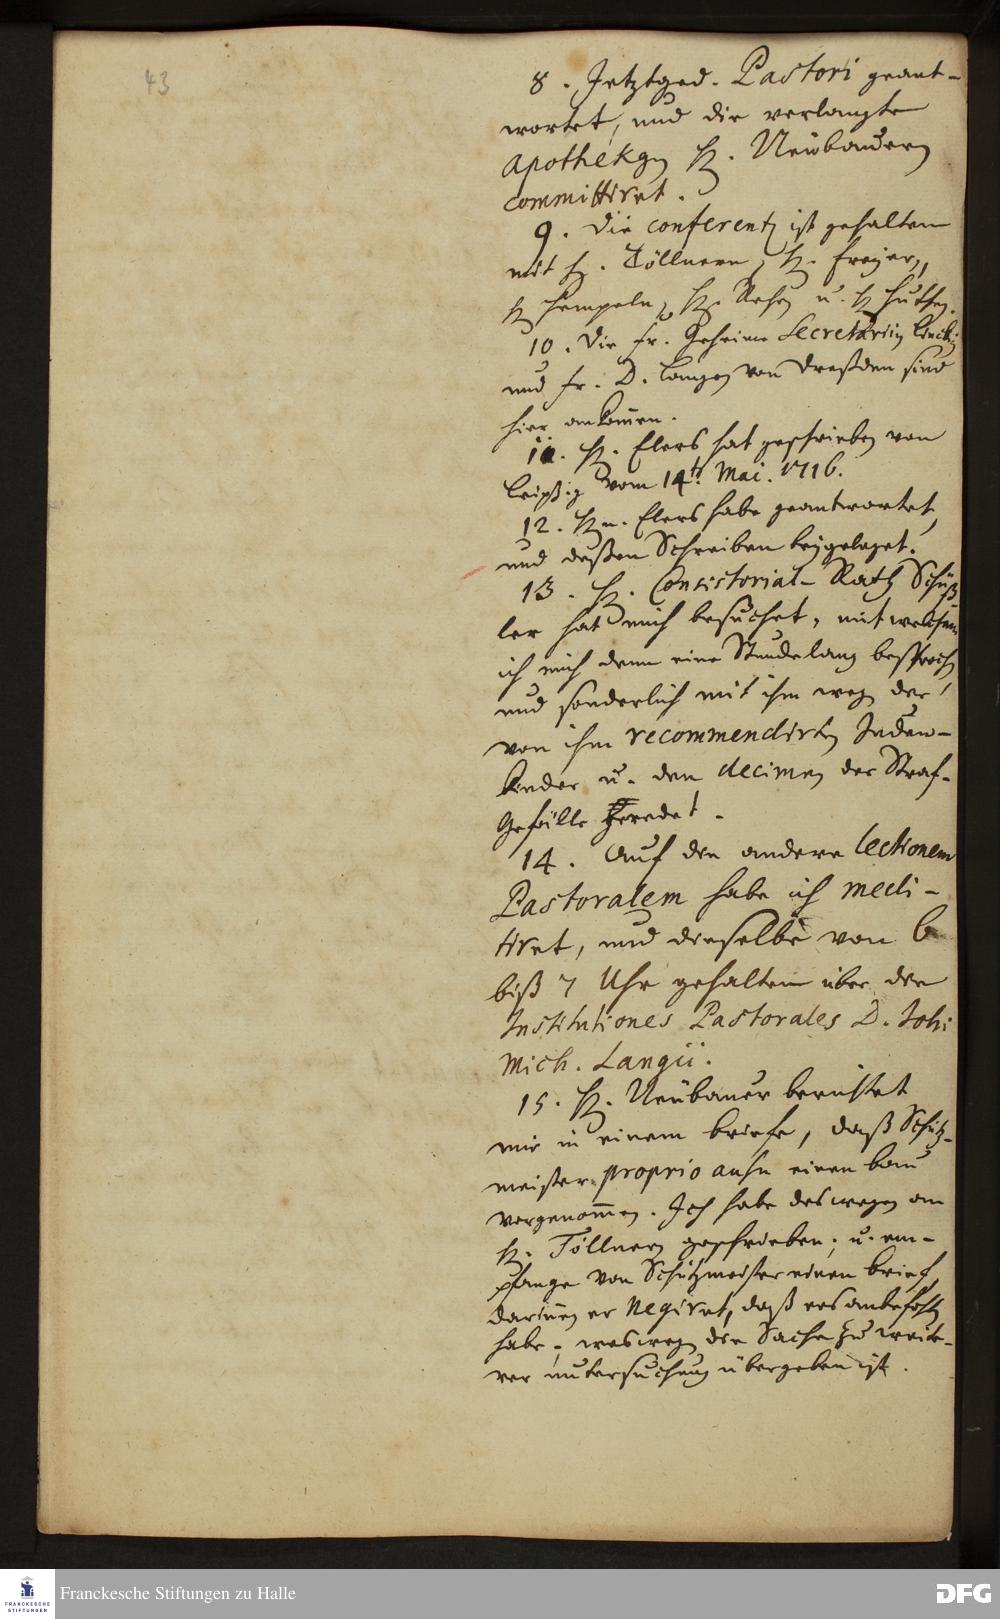 43
8. Jetztged. Pastori geant-
wortet, und die verlangte
Apotheken H. Neubauern
committiret.
9. Die conferentz ist gehalten
mit H. Töllnern, H. Freyer,
H Hempeln, H. Rehen u. H
10. Die Fr. Geheime Secretariin
und Fr. D. Langen von Dreßden sind
hier ankom̄en.
11. H. Elers hat geschrieben von
Leipzig vom 14t. Mai. 1716.
12. Hn. Elers habe geantwortet,
und deßen Schreiben beygeleget.
13. H. Consistorial-Rath Schüß-
ler hat mich besuchet, mit welchem
ich mich denn eine Stunde lang besproch
und sonderlich mit ihm weg. der
von ihm recommendirten Juden-
kinder u. den decimen der Straf-
Gefälle geredet.
14. Auf die andere lectionem
Pastoralem habe ich medi-
tiret, und dieselbe von 6
biß 7 Uhr gehalten über die
Institutiones Pastorales D. Joh:
Mich. Langii.
15. H. Neubauer berichtet
mir in einem briefe, daß Schütz-
meister proprio ausu einen bau
vorgenom̄en. Ich habe deswegen an
H. Töllnern geschrieben; u. em-
pfange von Schützmeister einen brief,
darin̄en er negiret, daß ers anbefohlen
habe; weswegen die Sache zu weite-
rer untersuchung übergeben ist.
Franckesche Stiftungen zu Halle
DFG
FRANCKESCHE
STIFTUNGEN